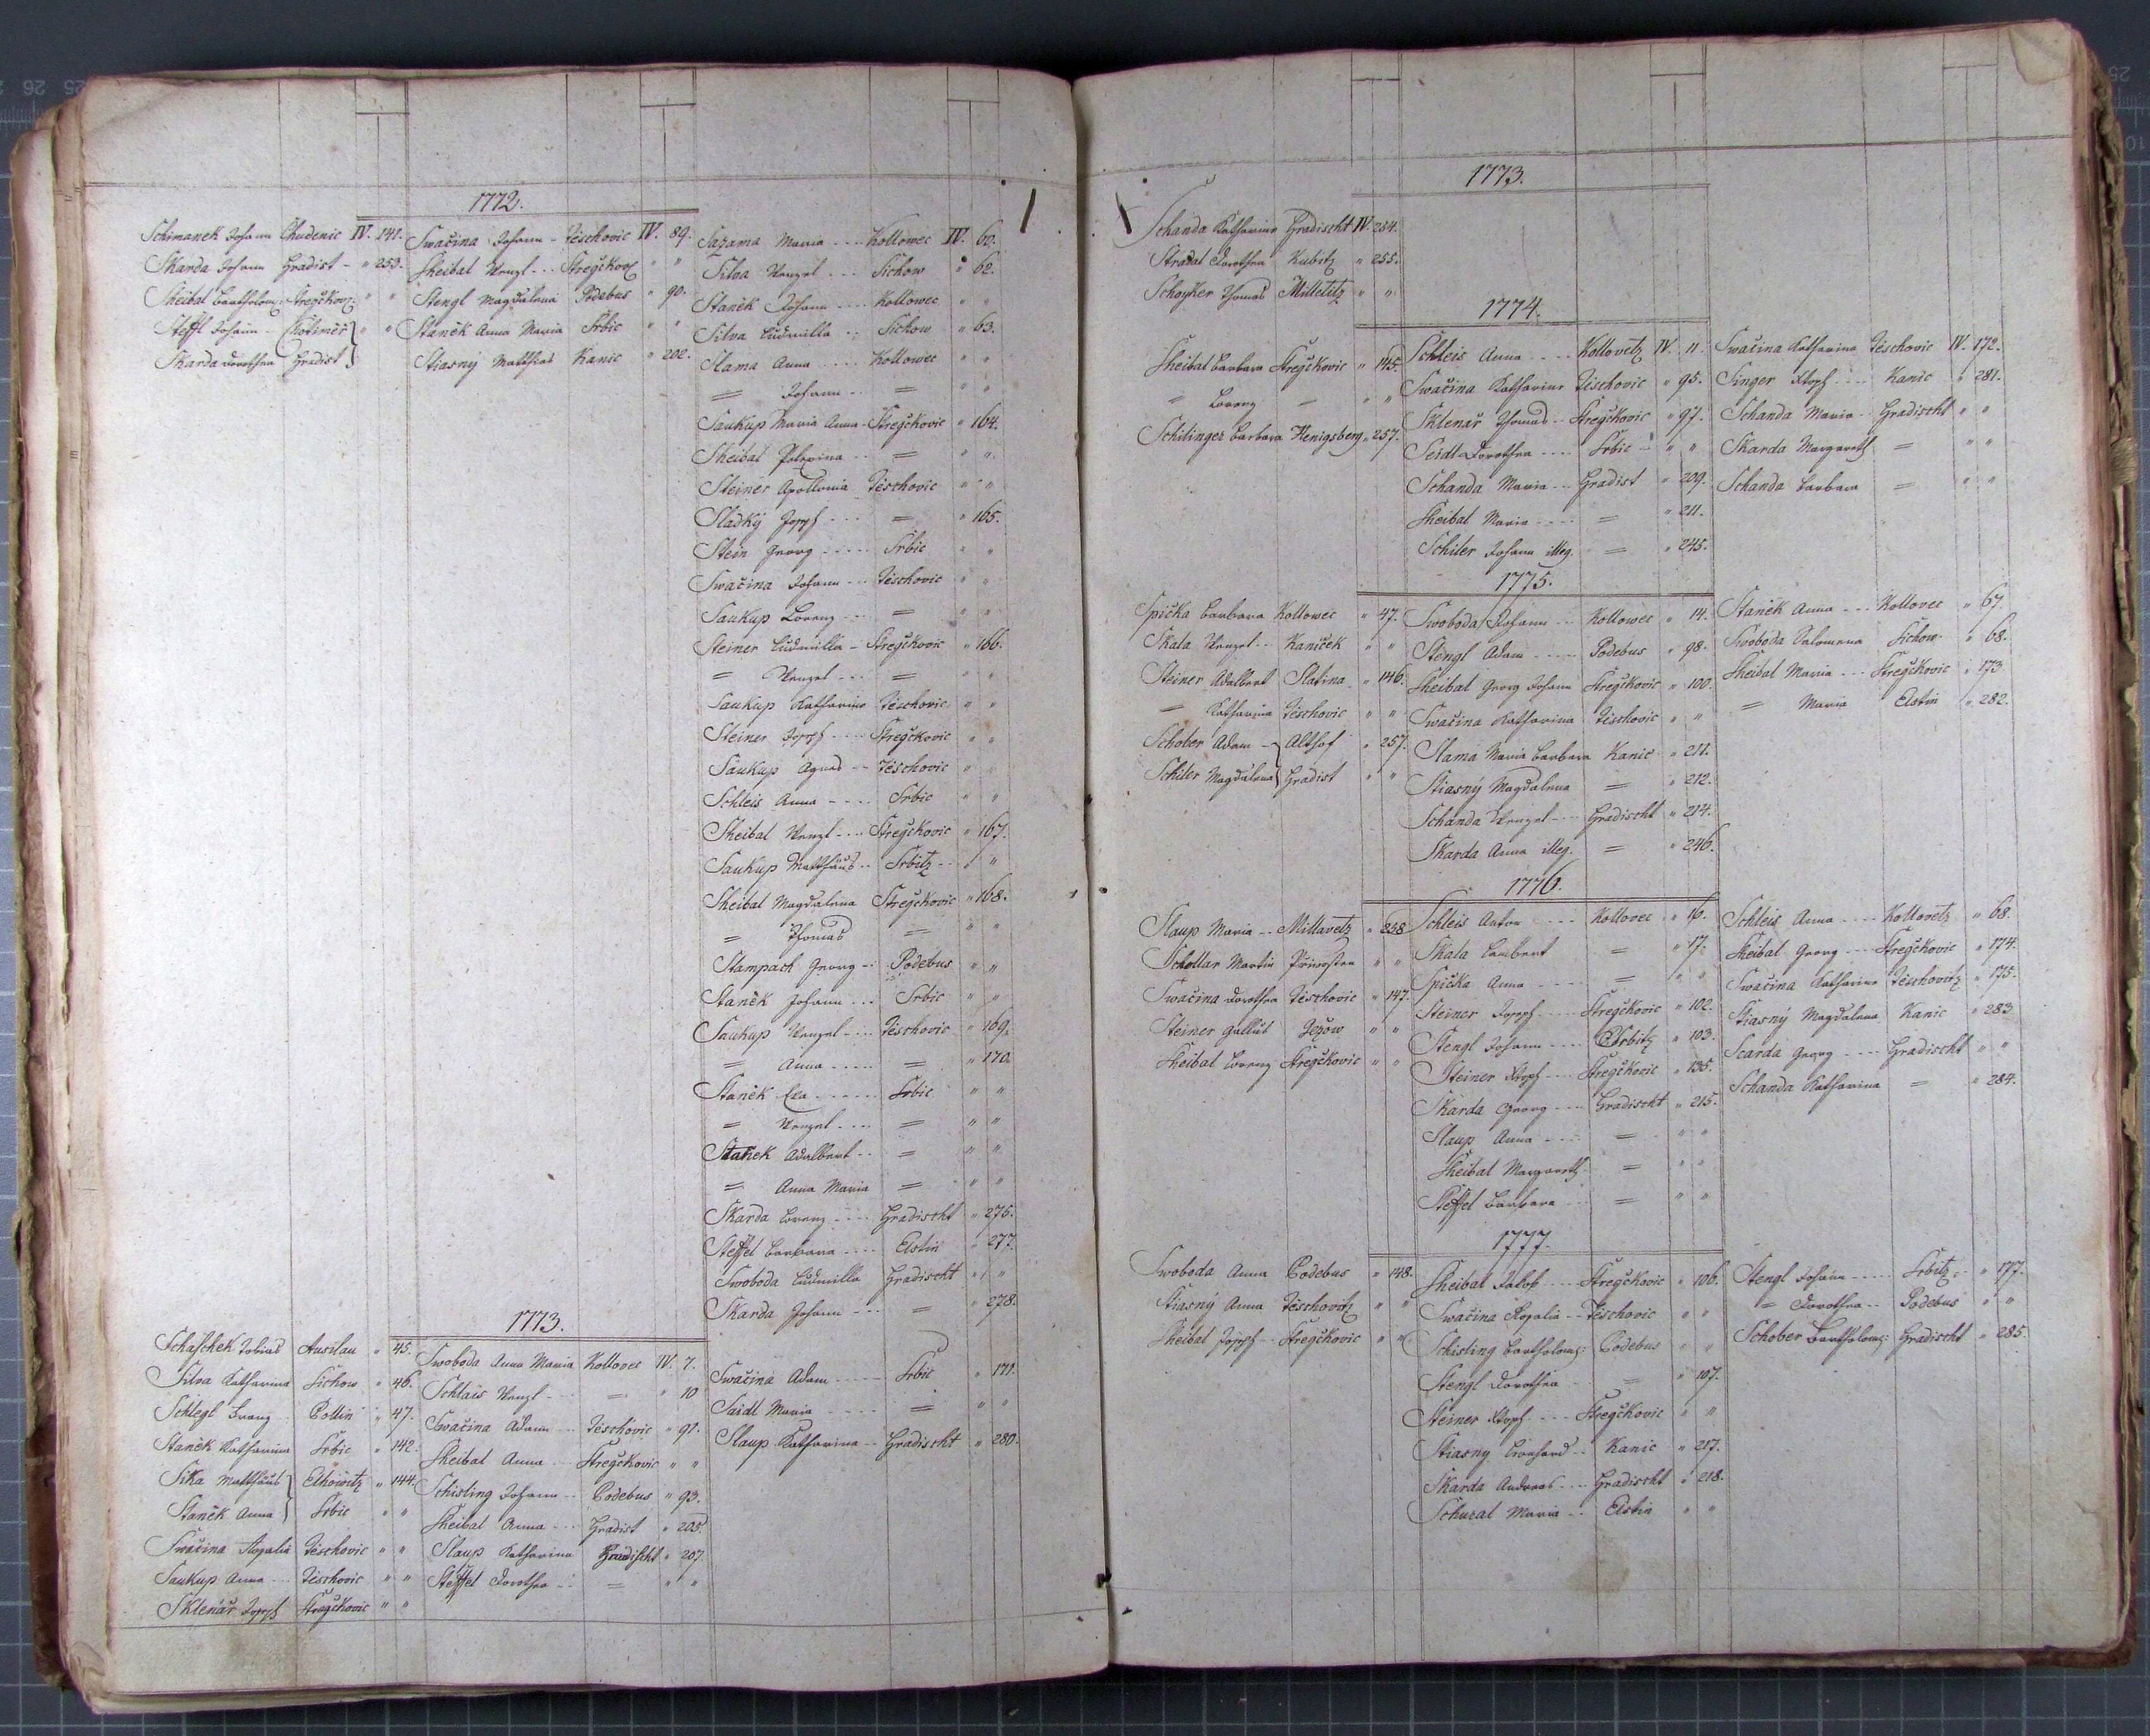 1772.
Schimanek Johann Chudenic IV. 141.
Skarda Johann Gradist - " 253.
Sheibal Bartholom: Stregčkov: " "
Steffl Johann - Chotiměř " "
Skarda Dorothea Gradist
Swačina Johann - Těschovic IV. 89.
Sheibal Wenzl - - - Stregčkov " "
Stengl Magdalena Podebus " 90.
Staněk Anna Maria Srbic " "
Stiasný Matthias Kanic " 202.
Sazama Maria - - - Kollowec IV. 60.
Silva Wenzel - - - Sichow " 62.
Staněk Johann - - - Kollowec " "
Silva Ludmilla - - Sichow " 63.
Slama Anna - - - Kollowec " "
= Johann - - = " "
Saukup Maria Anna - Stregčkovic " 164.
Sheibal Polexina - - = " "
Steiner Apollonia Těschovic " "
Sladký Joseph - - - = " 165.
Stein Georg - - - - Srbic " "
Swačina Johann - - - Těschovic " "
Saukup Lorenz - - = " "
Steiner Ludmilla - Stregčkovic " 166.
= Wenzel - - - = " "
Saukup Katharina Těschovic " "
Steiner Joseph - - - Stregčkovic " "
Saukup Agnes - - Těschovic "
Schleis Anna - - - - Srbic " "
Sheibal Wenzl - - - Stregčkovic " 167.
Saukup Matthäus - - Srbitz - - " "
Sheibal Magdalena Stregčkovic " 168.
= Thomas = " "
Stampach Georg - - Podebus " "
Staněk Johann - - - Srbic " "
Saukup Wenzel - - - Těschovic " 169.
= Anna - - - - - = " 170.
Staněk Eva - - - - - Srbic " "
= Wenzel - - - - = " "
Staněk Adalbert - - = " "
= Anna Maria = " "
Skarda Lorenz - - - - Gradischt " 275.
Steffel Barbara - - - - Elstin " 277.
Swoboda Ludmilla Gradischt " "
Skarda Johann - - - = " 278.
1773.
Schaschek Tobias Ausilau " 45.
Silva Katharina Sichow " 46.
Schlegl Franz Pollin " 47.
Staněk Katharina Srbic " 142.
Sika Matthäus Elhowitz " 144.
Staněk Anna Srbic " "
Swačina Rosalia Těschovic " "
Saukup Anna - - - Těschovic " "
Sklenář Joseph Stregčkovic " "
Swoboda Anna Maria Kollovec IV. 7.
Schlais Wenzl - - - = " 10
Swačina Adam - - - Těschovic " 91.
Sheibal Anna - - - Stregčkovic " "
Schisling Johann - - Podebus " 93.
Sheibal Anna - - - Gradist " 205.
Slaup Katharina Gradischt " 207.
Steffel Dorothea - - = " "
Swačina Adam - - - - Srbic " 171.
Saidl Maria - - - - = " "
Slaup Katharina - - Gradischt " 280.
1773.
Schanda Katharina Gradischt IV. 254.
Stradal Dorothea Kubitz " 255.
Schoyker Thomas Milletitz " "
1774.
Sheibal Barbara Stregčkovic " 145.
= Lorenz = " "
Schilinger Barbara Henigsberg " 257.
Schleis Anna - - - - Kollovetz IV. 11.
Swačina Katharina Těschovic " 95.
Sklenář Thomas - - Stregčkovic " 97.
Seidl Dorothea - - - - Srbic - " "
Schanda Maria - - - Gradist " 209.
Sheibal Maria - - - - = " 211.
Schiler Johann illeg. = " 245.
Swačina Katharina Těschovic IV. 172.
Singer Xtoph - - - Kanic " 281.
Schanda Maria - - Gradischt " "
Skarda Margareth = " "
Schanda Barbara = " "
1775.
Spička Barbara Kollowec " 47.
Skala Wenzel - - Kaniček " "
Steiner Adalbert Slatina " 146.
= Katharina Těschovic " "
Schober Adam - Althof " 257.
Schiler Magdalena Gradist " "
Swoboda Johann - - - Kollowec " 14.
Stengl Adam - - - - Podebus " 98.
Sheibal Georg Johann Stregčkovic " 100.
Swačina Katharina Těschovic " "
Slama Maria Barbara Kanic " 211.
Stiasný Magdalena = " 212.
Schanda Wenzel - - - Gradischt " 214.
Skarda Anna illeg. = " 246.
Staněk Anna - - - Kollovec " 67.
Swoboda Salomena Sichow " 68.
Sheibal Maria - - - Stregčkovic " 173.
= Maria Elstin " 282.
1776.
Slaup Maria - - Millavetz " 258
Schollar Martin Přivosten " "
Swačina Dorothea Těschovic " 147.
Steiner Gallus Jezow " "
Sheibal Lorenz Stregčkovic " "
Schleis Anton - - - - Kollovec " 16.
Skala Lambert = " 17.
Spička Anna - - - - = " "
Steiner Joseph - - - Stregčkovic " 102.
Stengl Johann - - - - Srbitz " 103.
Steiner Xtoph - - - - Stregčkovic " 135.
Skarda Georg - - - - Gradischt " 215.
Slaup Anna - - - - = " "
Sheibal Margareth - = " "
Steffel Barbara - - - = " "
Schleis Anna - - - - Kollovetz " 68.
Sheibal Georg - - - - Stregčkovic " 174.
Swačina Katharina Těschovitz " 175.
Stiasný Magdalena Kanic " 283
Scarda Georg - - - - Gradischt " "
Schanda Katharina = " 284.
1777.
Swoboda Anna Podebus " 148.
Stiasný Anna Těschovitz " "
Sheibal Joseph - - Stregčkovic " "
Sheibal Jakob - - - Stregčkovic " 106.
Swačina Rosalia - - Těschovic " "
Schisling Bartholom: Podebus " "
Stengl Dorothea - = " 107.
Steiner Xtoph - - - - Stregčkovic " "
Stiasny Leonhard - - Kanic " 217.
Skarda Andreas - - - Gradischt " 218.
Schusal Maria - - Elstin " "
Stengl Johann - - - - - Srbitz - " 177.
= Dorothea - - Podebus " "
Schober Bartholom: Gradischt " 285.